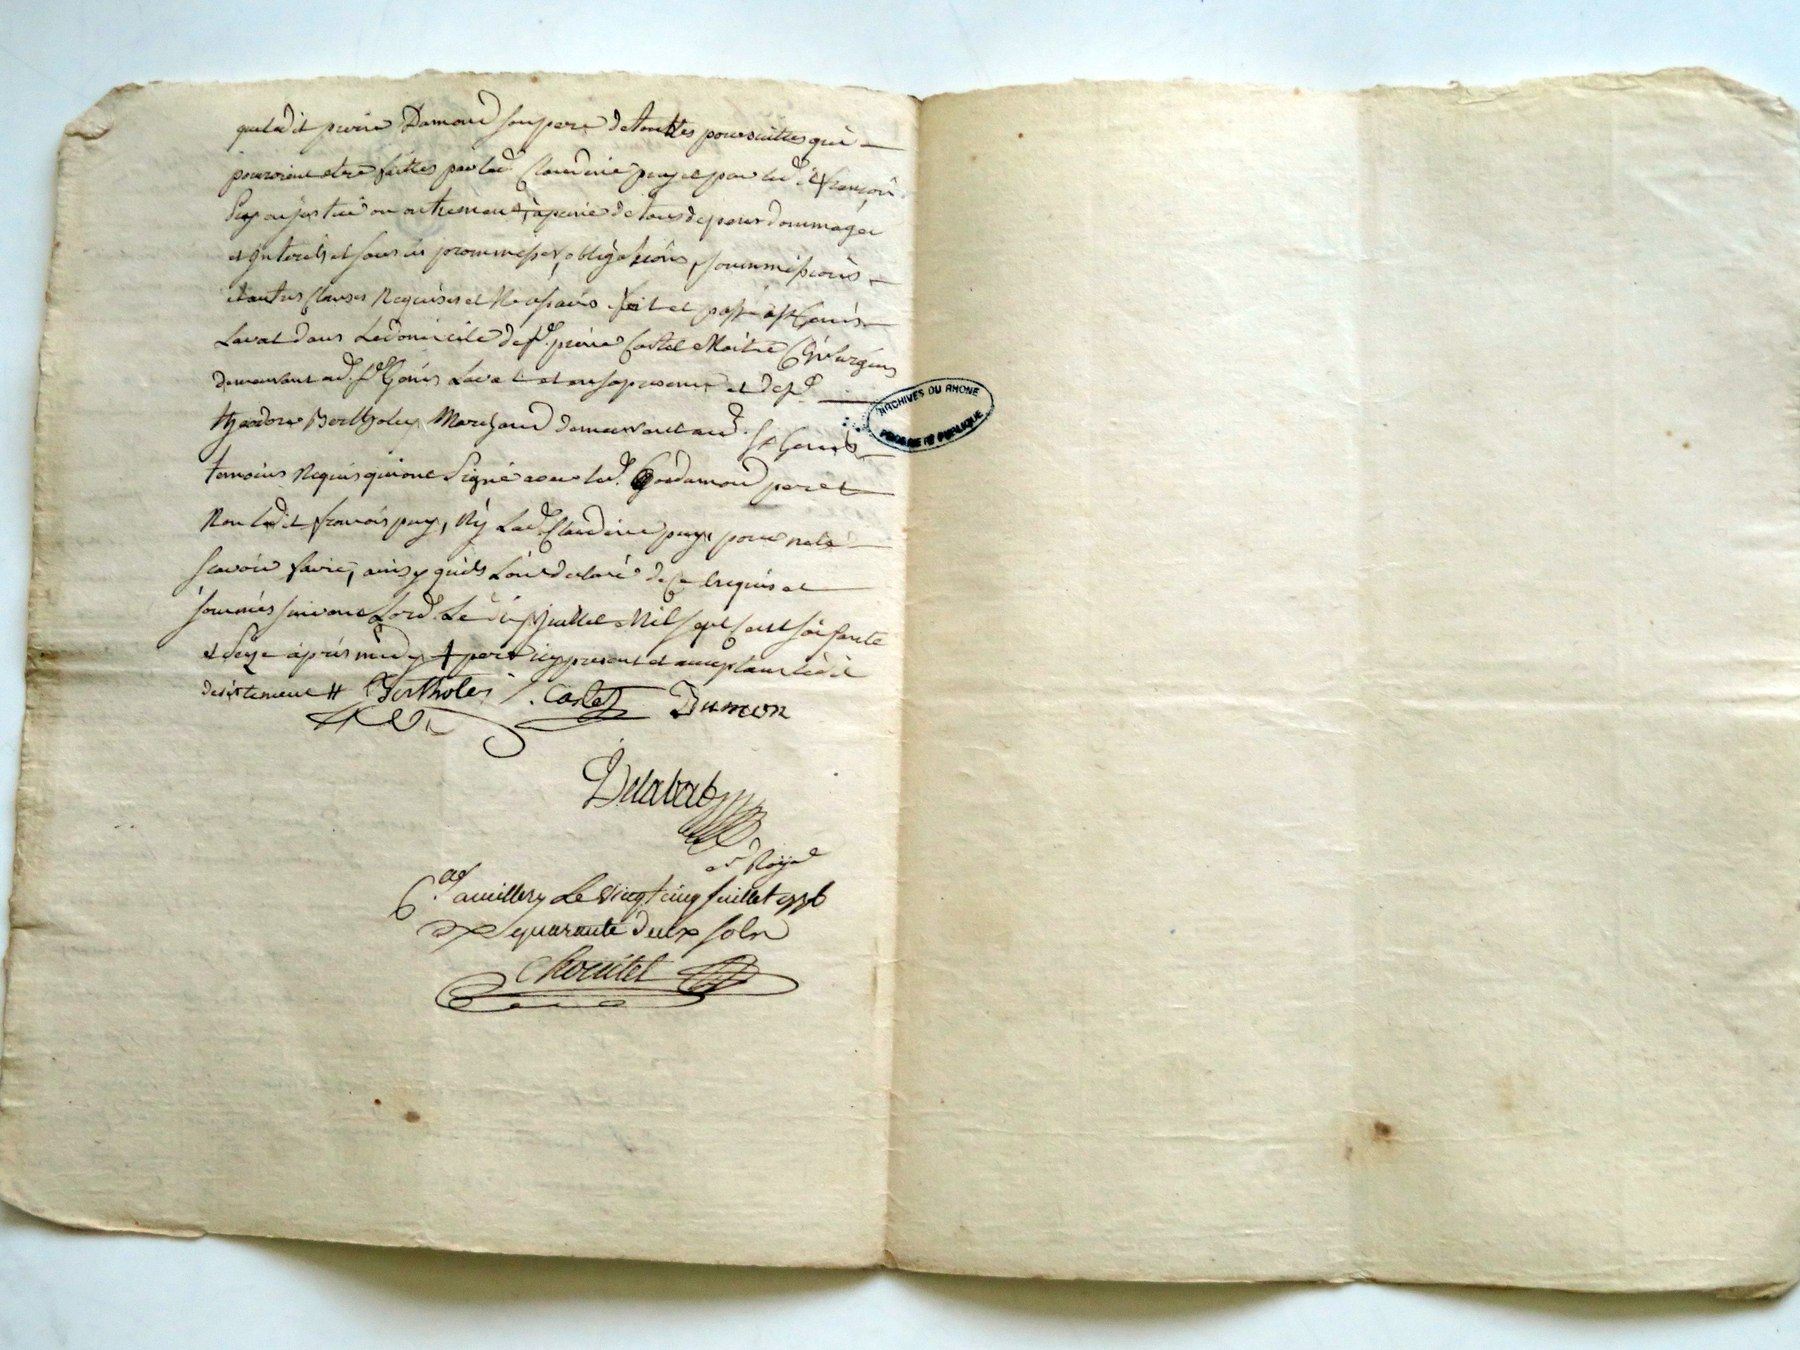 que ledit pierre Damond son pere de touttes poursuittes qui
pourroient etre faittes par lad Claudine puy et par led it françois
puy en justice ou autrement, à peine de tous depens dommages
et jnterets et sous les prommesses, obligations, soummissions
et autres clauses Requises et fait et passé a st Genis
Laval dans Le domicile de sr pierre Castel Maitre Chirurgien
demeurant aud. st Genis Laval et en sa presence et de sr
theodore Bertholey Marchand demeurant aud. st Genis
temoins Requis qui ont signé avec led. damond pere et
Non ledit francois puy, Ny Lad. Claudine puy, pour ne le
scavoir faire, ainsy qu'ils L'ont declaré de ce Enquis et
sommés suivant Lord. Le Juillet Mil sept cent soixante
et seize après midy + pere icy present et acceptant ledit
desistement # Bertholey J. Castel Dumon
Delabat
nre Royal
C. a millery Le vingt cinq Juillet 1776
quarante deux sols
Choutet
ARCHIVES DU RHONE
PROPRIETE PUBLIQUE